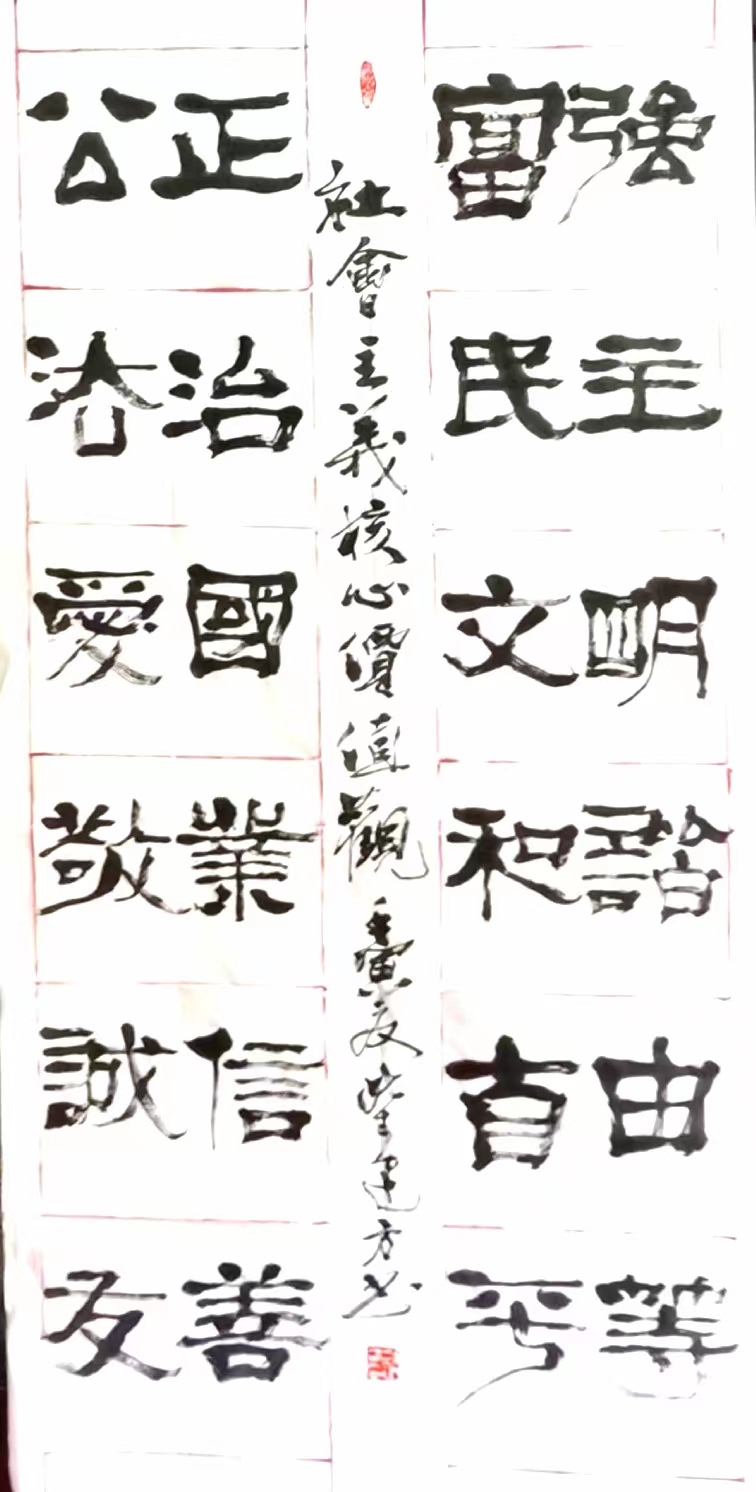 富強
民主
文明
和諧
自由
平等
公正
法治
愛國
敬業
誠信
友善
社會主義核心價值觀 壬寅夏 建方书